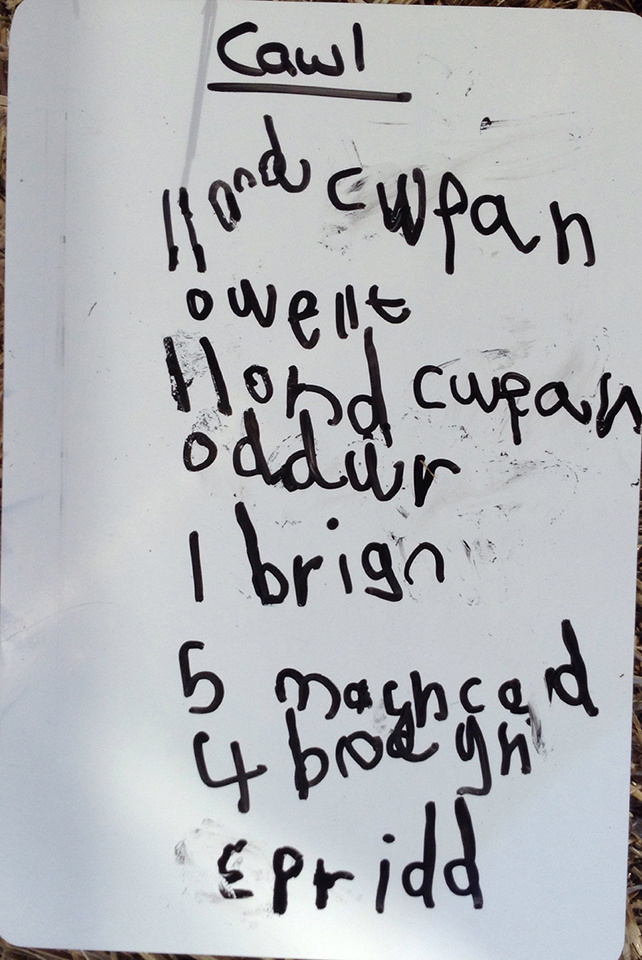 Cawl
llond cwpan
o wellt
llond cwpan
o ddwr
1 brign
5 moghced
4 brogyn
Epridd